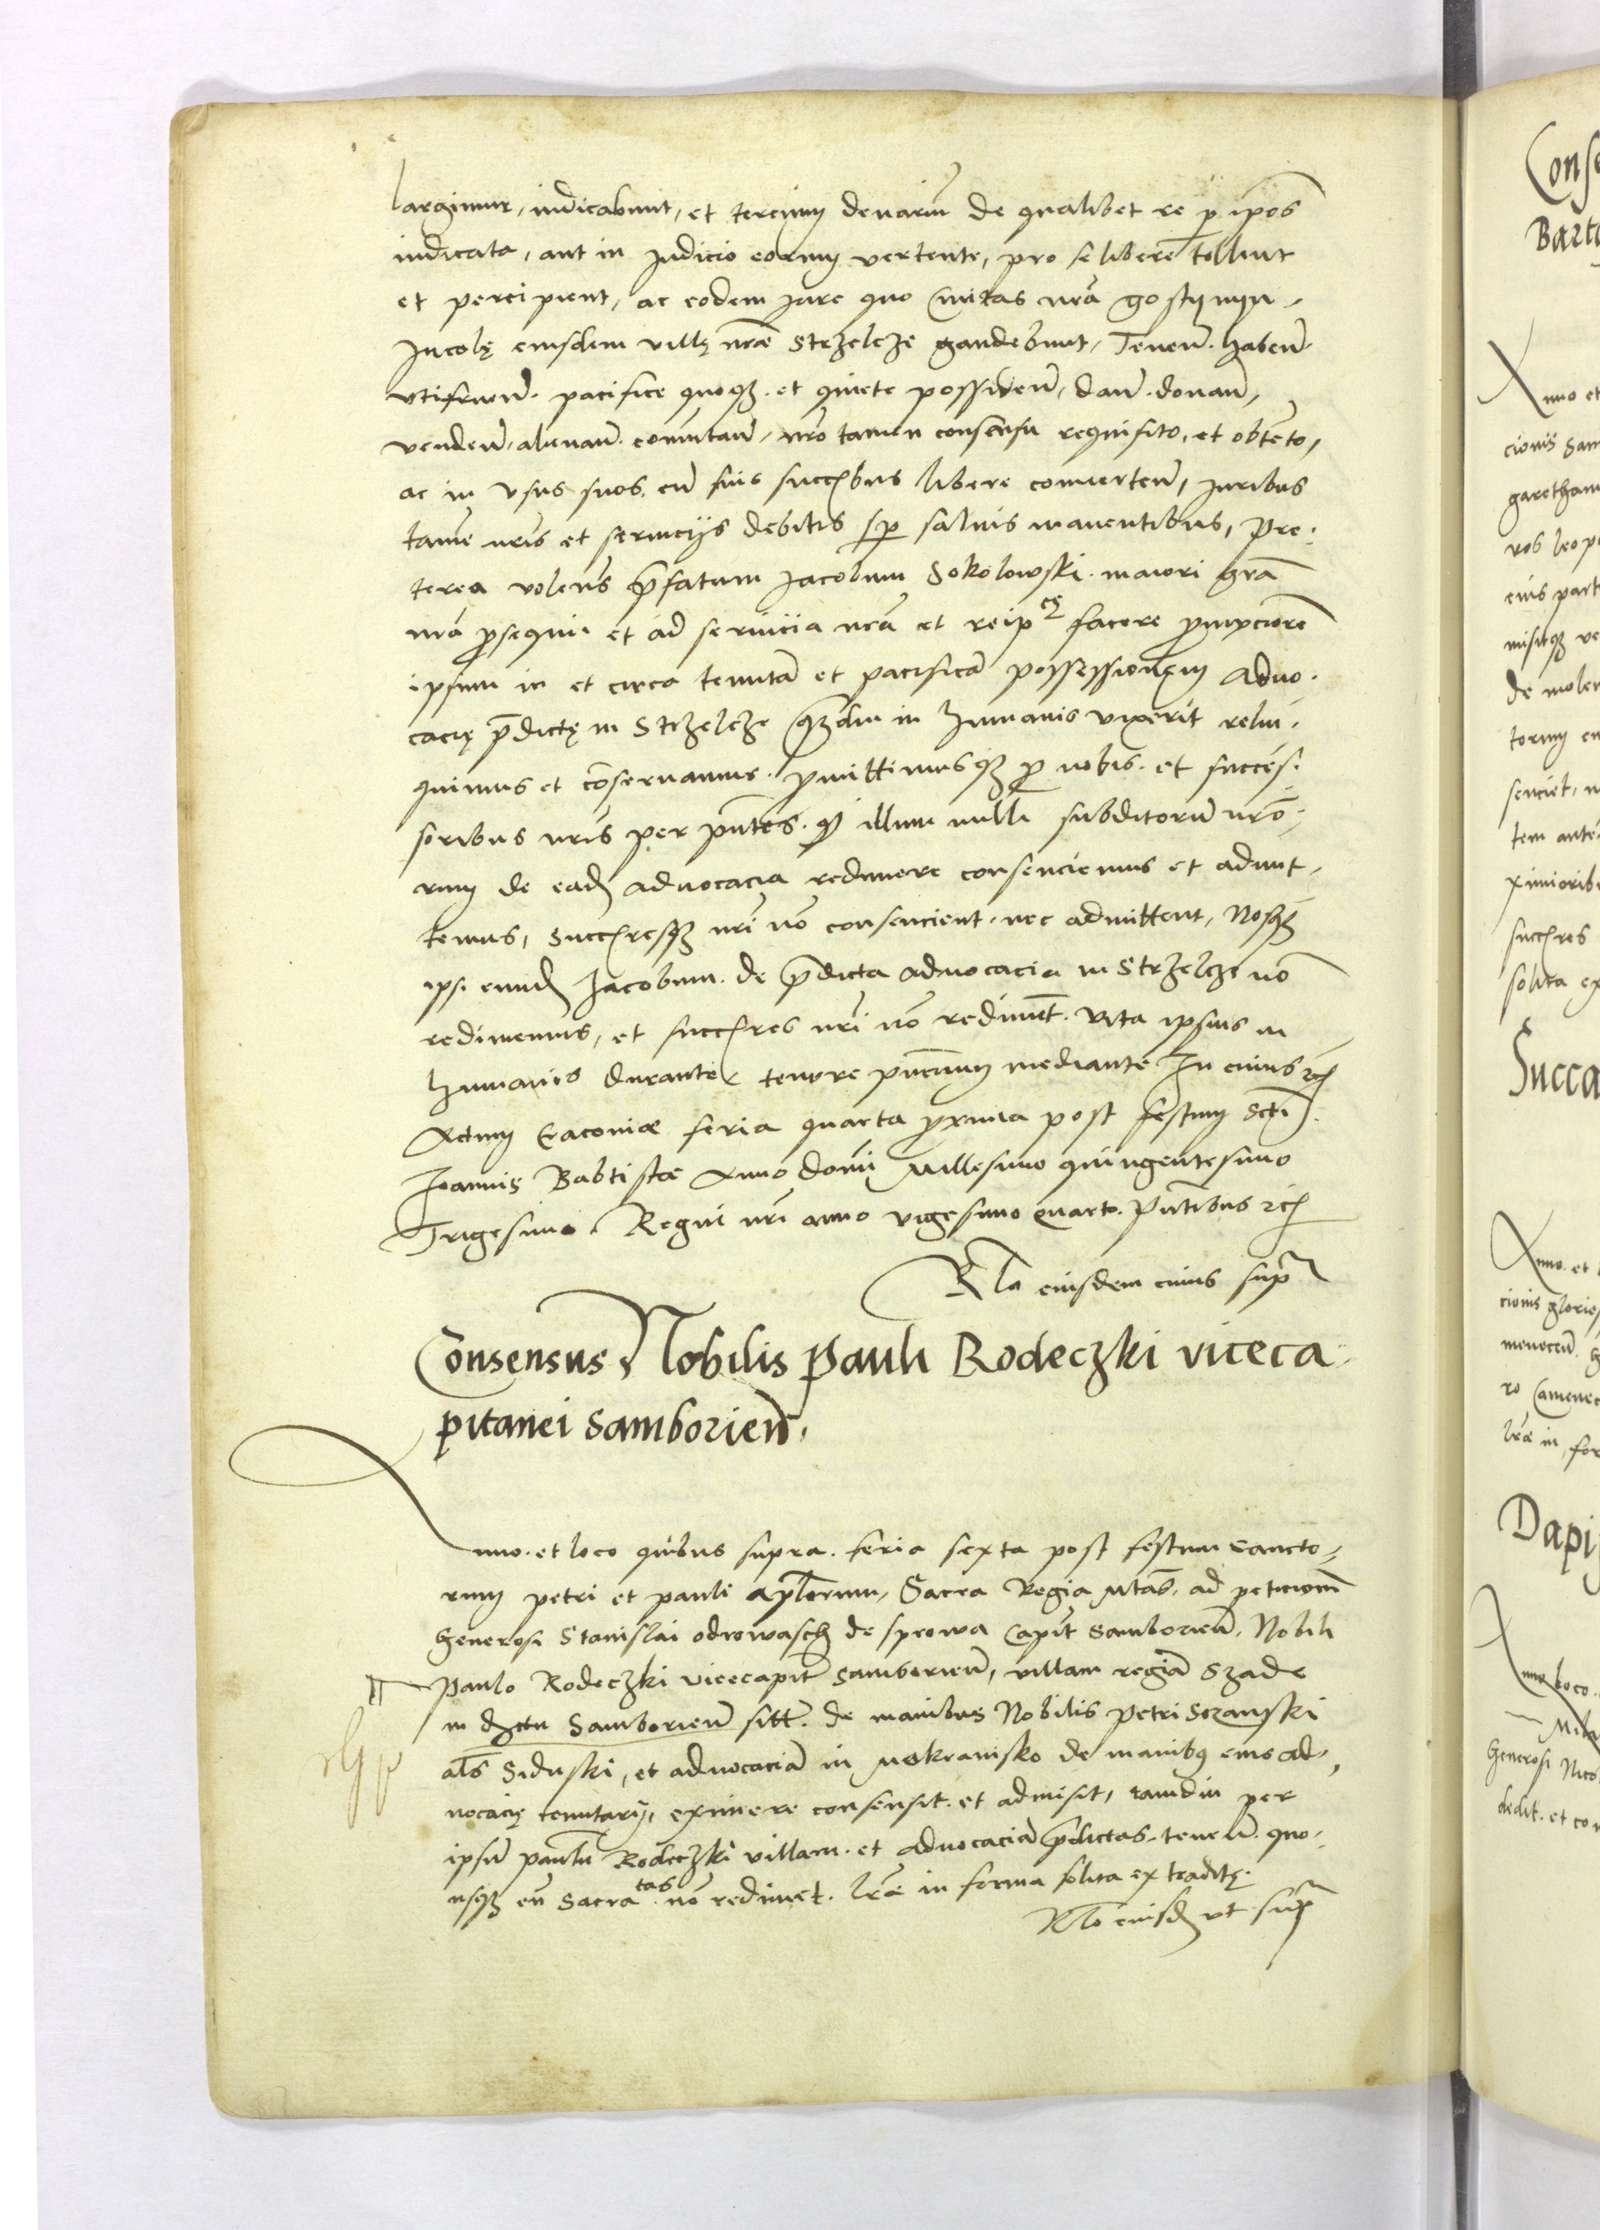 largimur, iudicabunt, et tercium denariũ de qualibet re p ipos
iudicata, aut in Judicio eorum vertente, pro se libere tollent
et percipient, ac eodem jure quo Civitas nrã gostyniyn
Jncolę eiusdem villę nrãe Strzelcze gaudebunt, Teneñ. habeñ.
vtifrueñ. pacifice quoqz. et quiete possideñ, dañ. donañ,
vendeñ, alienañ. comutañ, nrõ tamen consensu requisito, et obtẽto,
ac in vsus suos, cũ suis succ̃ibus libere converteñ, juribus
tamẽ nrĩs et serviciis debitis sp salvis manentibus, Pre:
terea volens p̃fatum Jacobum Sokolowski maiori grã
nrã p̃sequi et ad servicia nrã et reip cę facere p̃mpciorẽ
ipsum in et circa tenutã et pacificã possessionem Advo.
cacię p̃dictę in Strzelcze q̃zdiu in humanis vixerit relin.
quimus et cõservamus. p̃mittimusqz p̃ nobis. et succes.
soribus nrĩs per pñtes. qz illum nulli subditorũ nrõ:
rum de eadz advocacia redimere consenciemus et admit.
temus, Succ̃resqz nrĩ nõ consencient. nec admittent, Nosqz
ipsi eundz Jacobum. de p̃dicta advocacia in Strzelcze nõ
redimemus, et succ̃res nrĩ nõ rediment. vita ipsius in
humanis durante tenore pñcium mediante Jn cuius rei
Actum Cracoviæ feria quarta p̃xima post festum Scti
Joannis Babtistæ Anno domĩ Millesimo quingentesimo
Trigesimo. Regni nrĩ anno vigesimo quarto. Pñtibus etc
Rlo eiusdem cuius sup̃
Consensus Nobilis Pauli Rodeczki viceca
pitanei samborieñ.
Anno. et loco quibus supra. feria sexta post festum sancto.
rum petri et pauli aplorum, Sacra Regia Mtas. ad peticionẽ
Generosi Stanislai odrowasch de sprowa Capit Samborieñ. Nobili
Paulo Rodeczki vicecapit Samborieñ, villam regiã Szade
in dzctu Samborieñ sitt. de manibus Nobilis Petri Sozanski
als Siduski, et advocaciã in Mokransko de manibus eius ad.
vocacię tenutarij, eximere consensit. et admisit, tamdiu per
ipsũ paulũ Rodeczki villam. et advocaciã p̃dictas. teneñ. quo.
usqz eũ Sacra tas nõ redimet. lrãe in forma solita ex traditę.
Rlo eiusdz vt sup̃